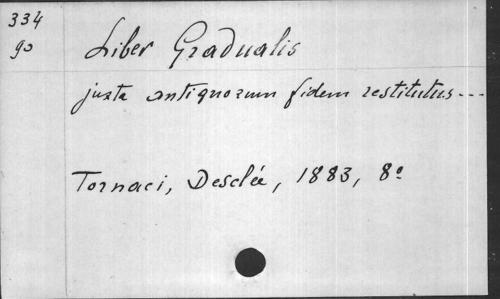 334
90
Liber Gradualis
juxta antiquorum fidem restitutus ---
Tornaci, Desclée, 1883, 8º